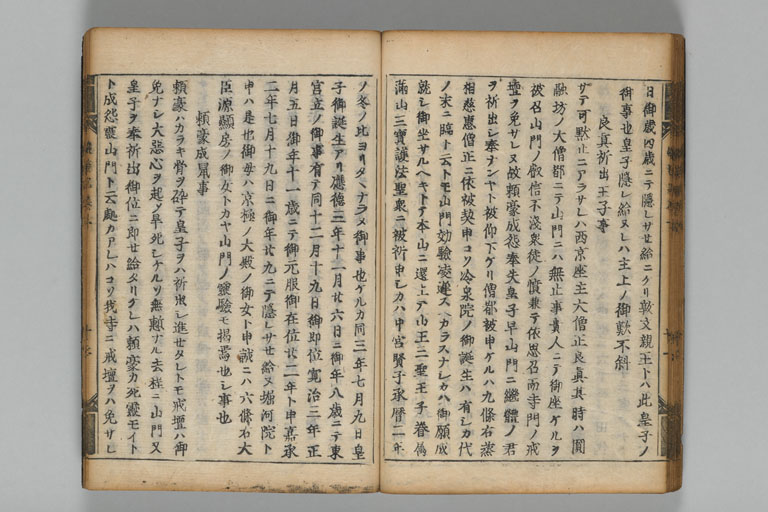 日御歳四歳ニテ隠レサせ給ニケリ敦文親王トハ此皇子ノ
御事也皇子隠レ給ヌレハ主上ノ御歎不斜
良真祈出王子事
サテ可黙止ニアラサレハ西京座主大僧正良真其時ハ圓
融坊ノ大僧都ニテ山門ニハ無止事貴人ニテ御座ケルヲ
被召山門ノ叡信不浅衆徒ノ憤兼テ依思召而寺門ノ戒
壇ヲ免サレヌ故頼豪成怨奉失皇子早山門ニ継體ノ君
ヲ祈出シ奉ナンヤト被仰下ケリ僧都被申ケルハ九條右丞
相慈恵僧正ニ依被契申コソ冷泉院ノ御誕生ハ有シカ代
ノ末ニ臨ト云トモ山門効験凌遅スヘカラスナレカハ御願成
就シ御坐サルヘキトテ本山ニ還上テ山王二聖王子眷属
満山三寶護法聖衆ニ被祈申シカハ中宮賢子承暦二年
ノ冬ノ比ヨリタヽナラヌ御事也ケルカ同三年七月九日皇
子御誕生アリ應徳三年十一月廿六日ニ御年八歳ニテ東
宮立ノ御事有テ同十二月十九日御即位寛治三年正
月五日御年十一歳ニテ御元服御在位廿二年ト申嘉承
二年七月十九日ニ御年廿九ニテ隠レサせ給ヌ堀河院ト
申ハ是也御母ハ京極ノ大殿ノ御女ト申誠ニハ六條右大
臣源顕房ノ御女トカヤ山門ノ靈驗モ掲焉也シ事也
頼豪成鼠事
頼豪ハカラキ骨ヲ砕テ皇子ヲハ祈出シ進せタレトモ戒壇ハ御
免ナシ大悪心ヲ起メ早死シケルソ無慙ナル去程ニ山門又
皇子ヲ奉祈出御位ニ即せ給タリケレハ頼豪カ死霊モイト
ト成怨靈山門ト云處カアレハコソ我寺ニ戒壇ヲハ免サレ